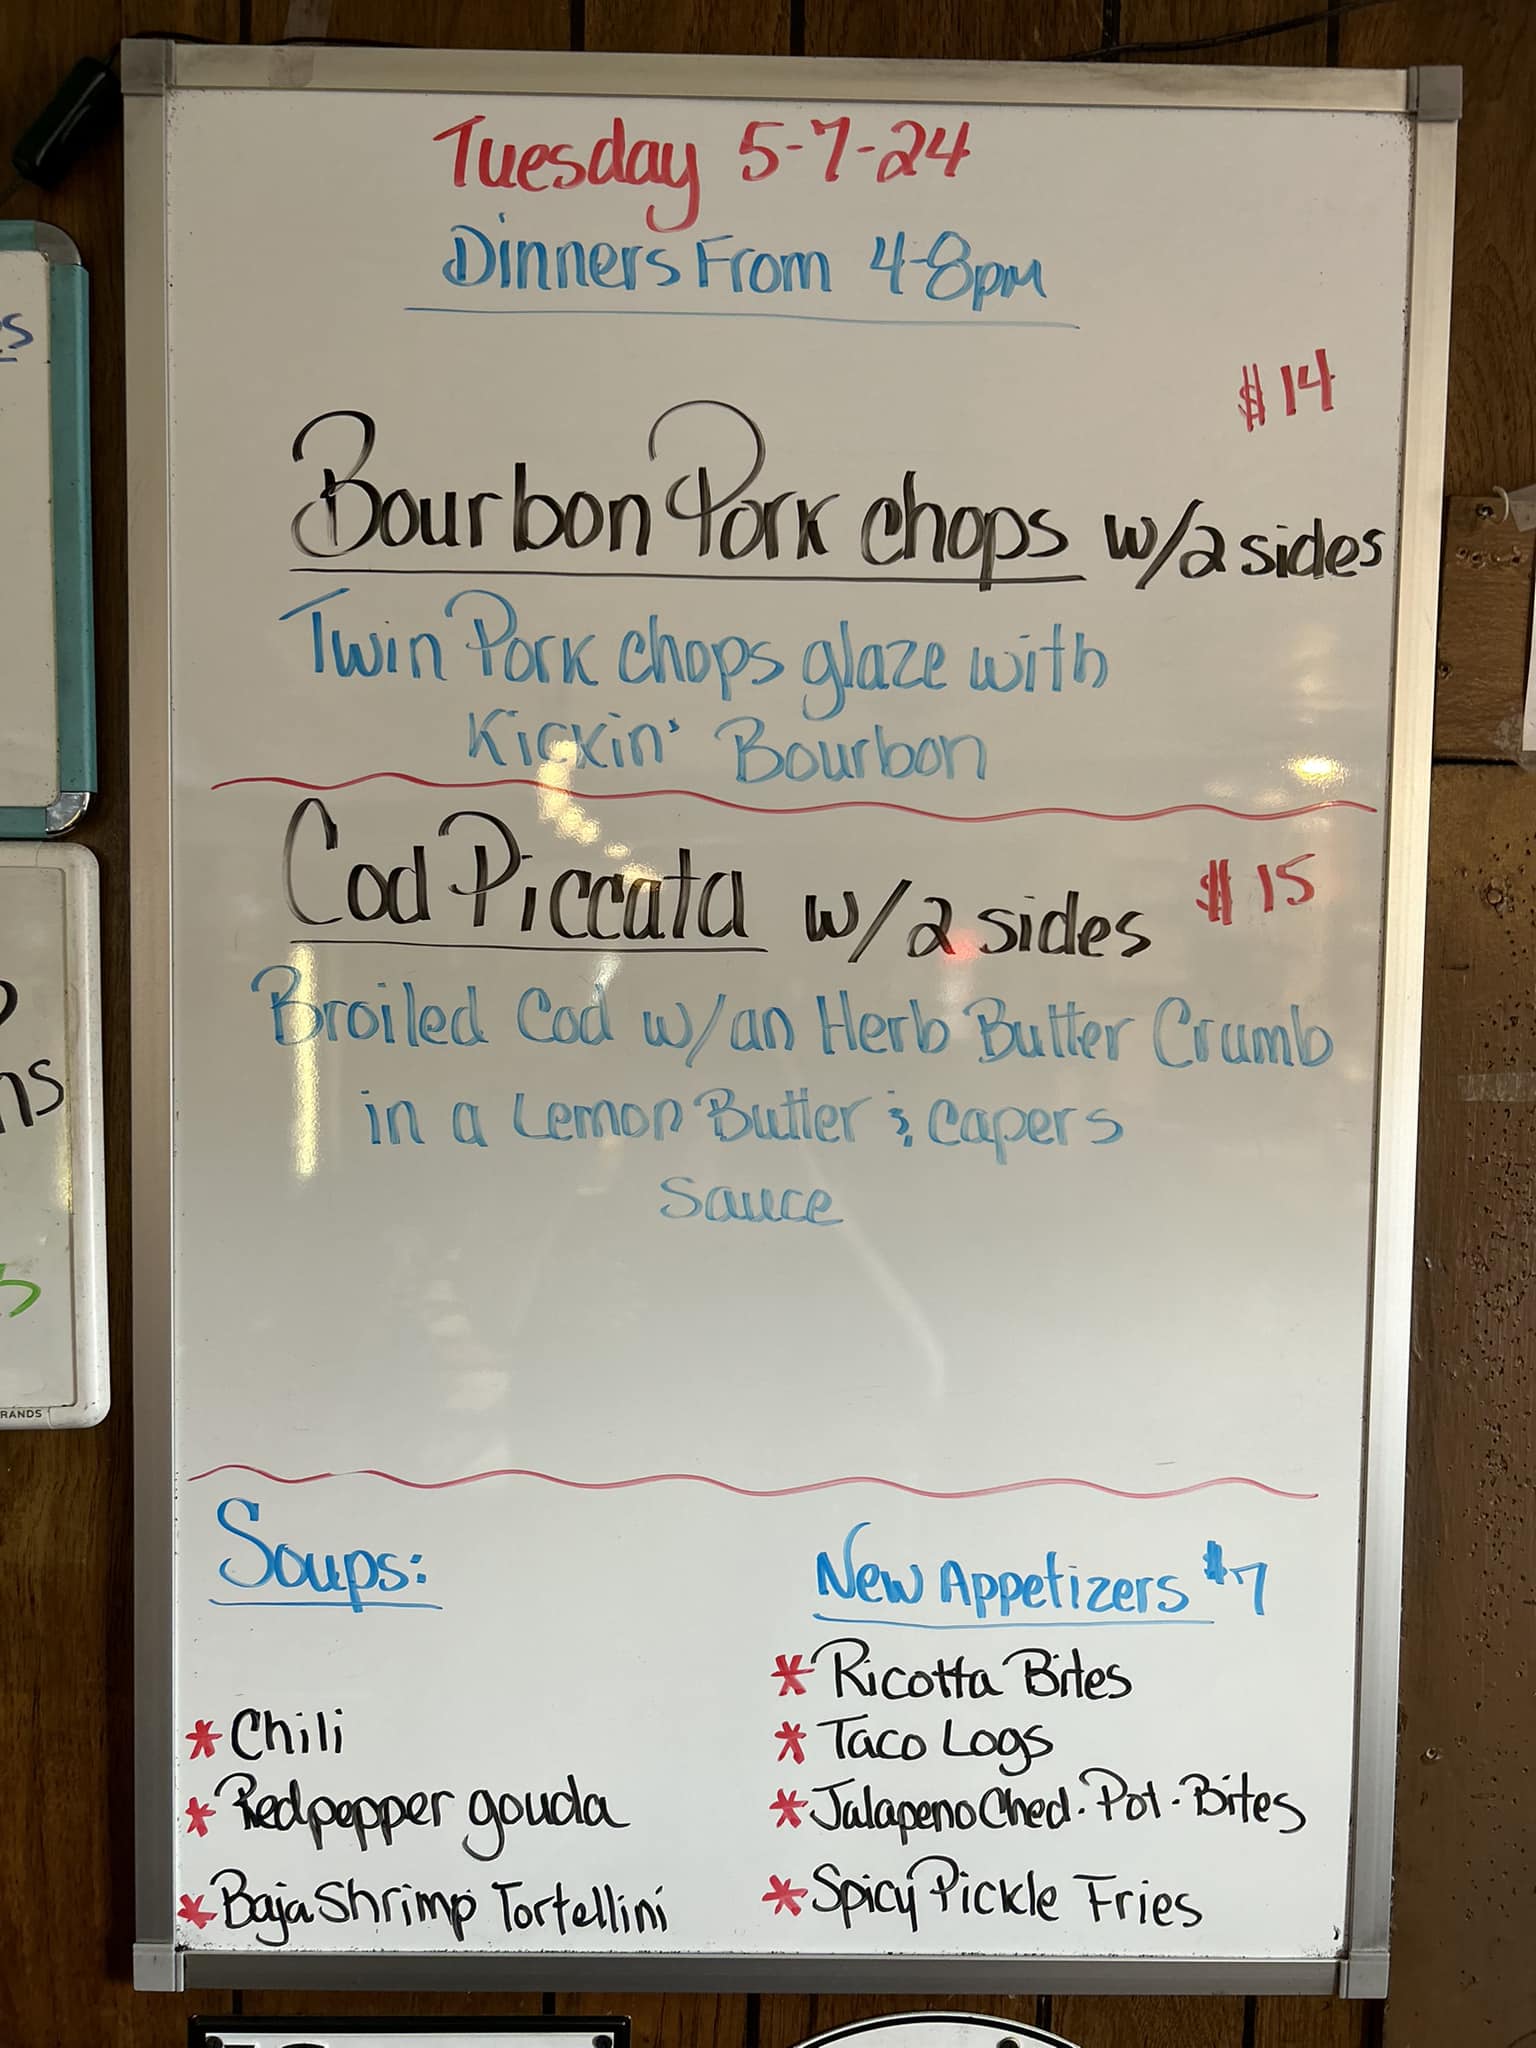 Tuesday 5-7-24
Dinners From 4-8pm
$14
Bourbon Pork chops w/2 sides
Twin Pork chops glaze with
Kickin' Bourbon
Cod Piccata w/2 sides $15
Broiled Cod w/an Herb Butter Crumb
in a Lemon Butter & capers
sauce
Soups:
* Chili
* Redpepper gouda
* Baja Shrimp Tortellini
New Appetizers $7
* Ricotta Bites
* Taco Logs
* Jalapeno Ched. Pot. Bites
* Spicy Pickle Fries
RANDS